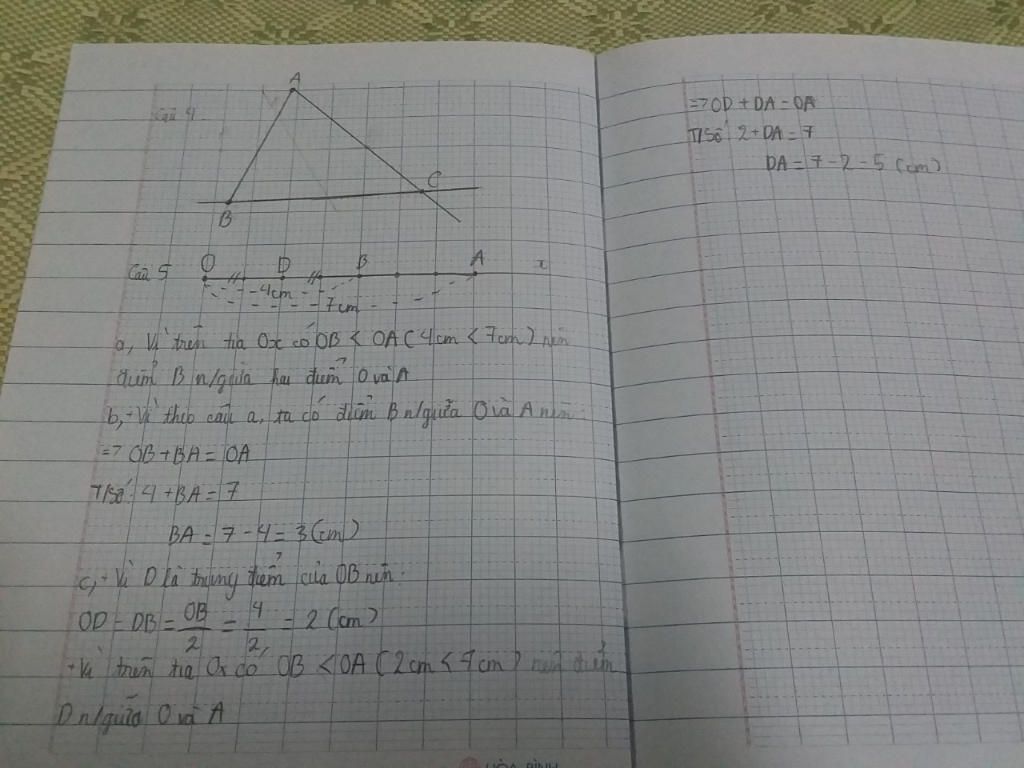 Câu 4
A
B
C
Câu 5
O
D
B
A
x
4cm
7cm
a, Vì trên tia Ox có OB < OA (4cm < 7cm) nên
điểm B n/giữa hai điểm O và A
b, + Vì theo câu a, ta có điểm B n/giữa O và A nên:
=> OB + BA = OA
T/Số: 4 + BA = 7
BA = 7 - 4 = 3 (cm)
c, + Vì D là trung điểm của OB nên:
OD = DB = OB/2 = 4/2 = 2 (cm)
+ Vì trên tia Ox có OB < OA (2cm < 7cm) nên điểm
D n/giữa O và A
=> OD + DA = OA
T/Số: 2 + DA = 7
DA = 7 - 2 = 5 (cm)
HÒA BÌNH